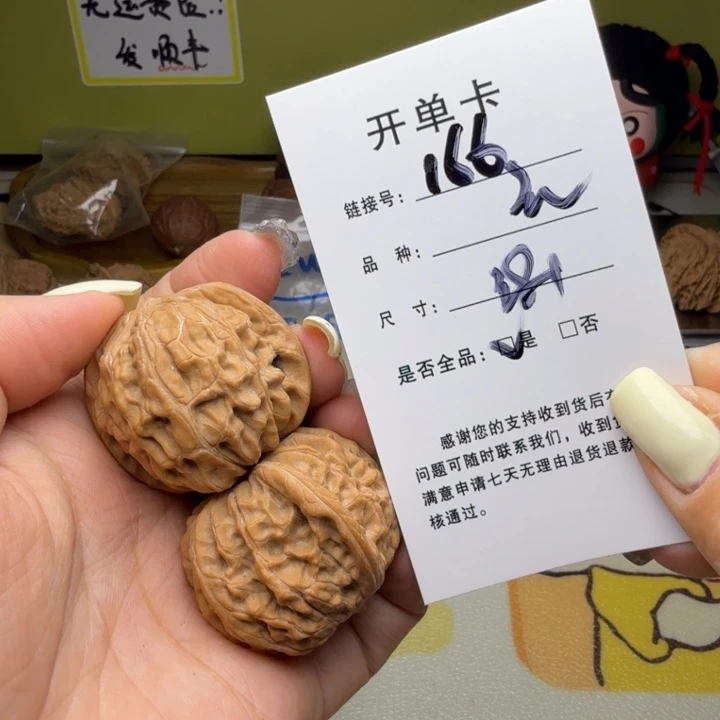 无运费险..
发顺丰
开单卡
链接号: 166
品 种:
尺 寸:
是否全品: ☑是 □否
感谢您的支持收到货后有
问题可随时联系我们,收到
满意申请七天无理由退货退款
核通过。